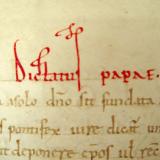 Dictatus papae.
a solo dño sit fundata
s pontifex iure dicat un
it deponere epos ul rec